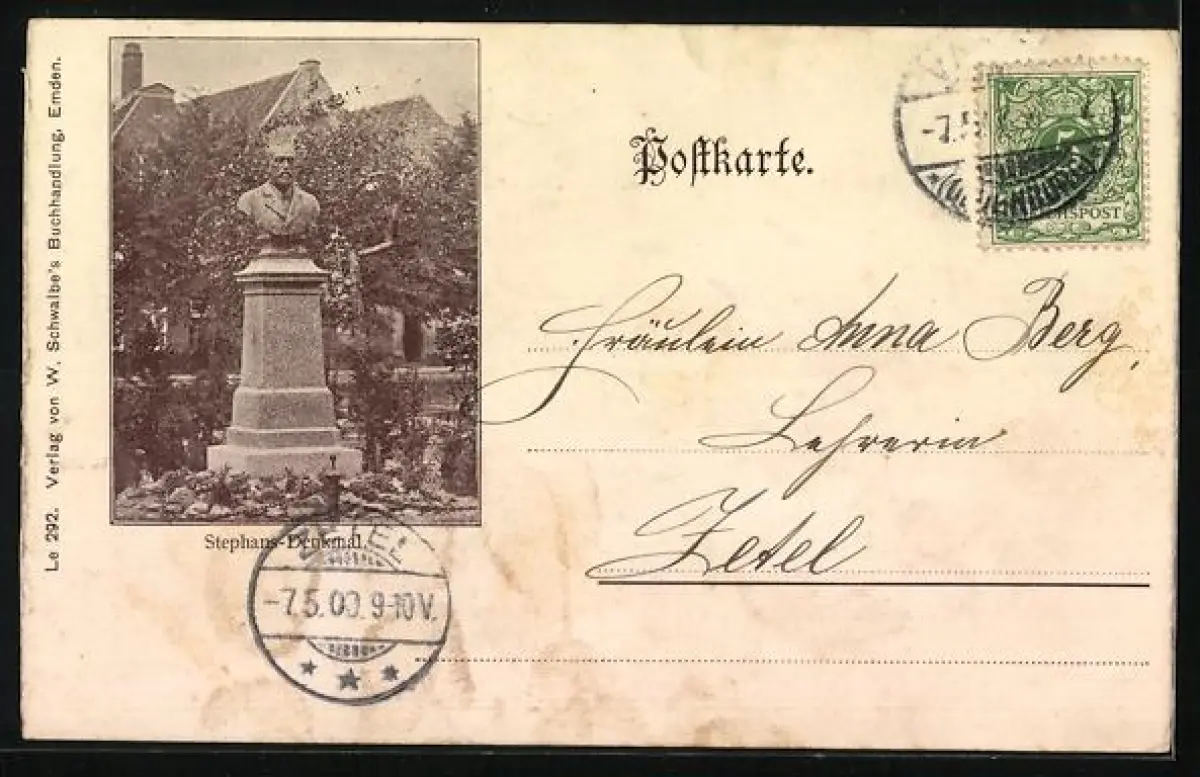 Le 292. Verlag von W. Schwalbe's Buchhandlung, Emden.
Postkarte.
-7.5
(OLDENBURG)
5
REICHSPOST
Fräulein Anna Berg,
Lehrerin
Zetel
Stephans-Denkmal.
ZETEL
-7.5.00.9-10V.